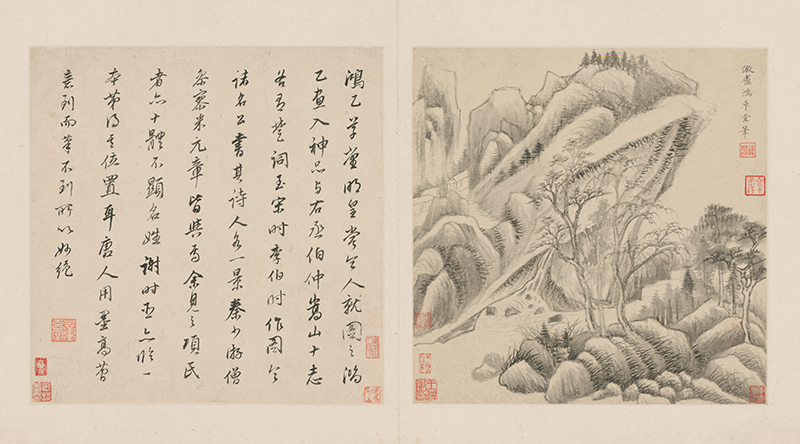 倣盧鴻草堂筆
鴻乙草堂明皇嘗令人就圖之鴻
乙畫入神品与右丞伯仲嵩山十志
各有楚詞至宋時李伯時作圖令
諸名公書其詩人各一景秦少游僧
参寥米元章皆與焉余見之項氏
者亦十體不顯名姓謝時臣亦臨一
本第得其位置耳唐人用墨高
意到而筆不到所以妙絕